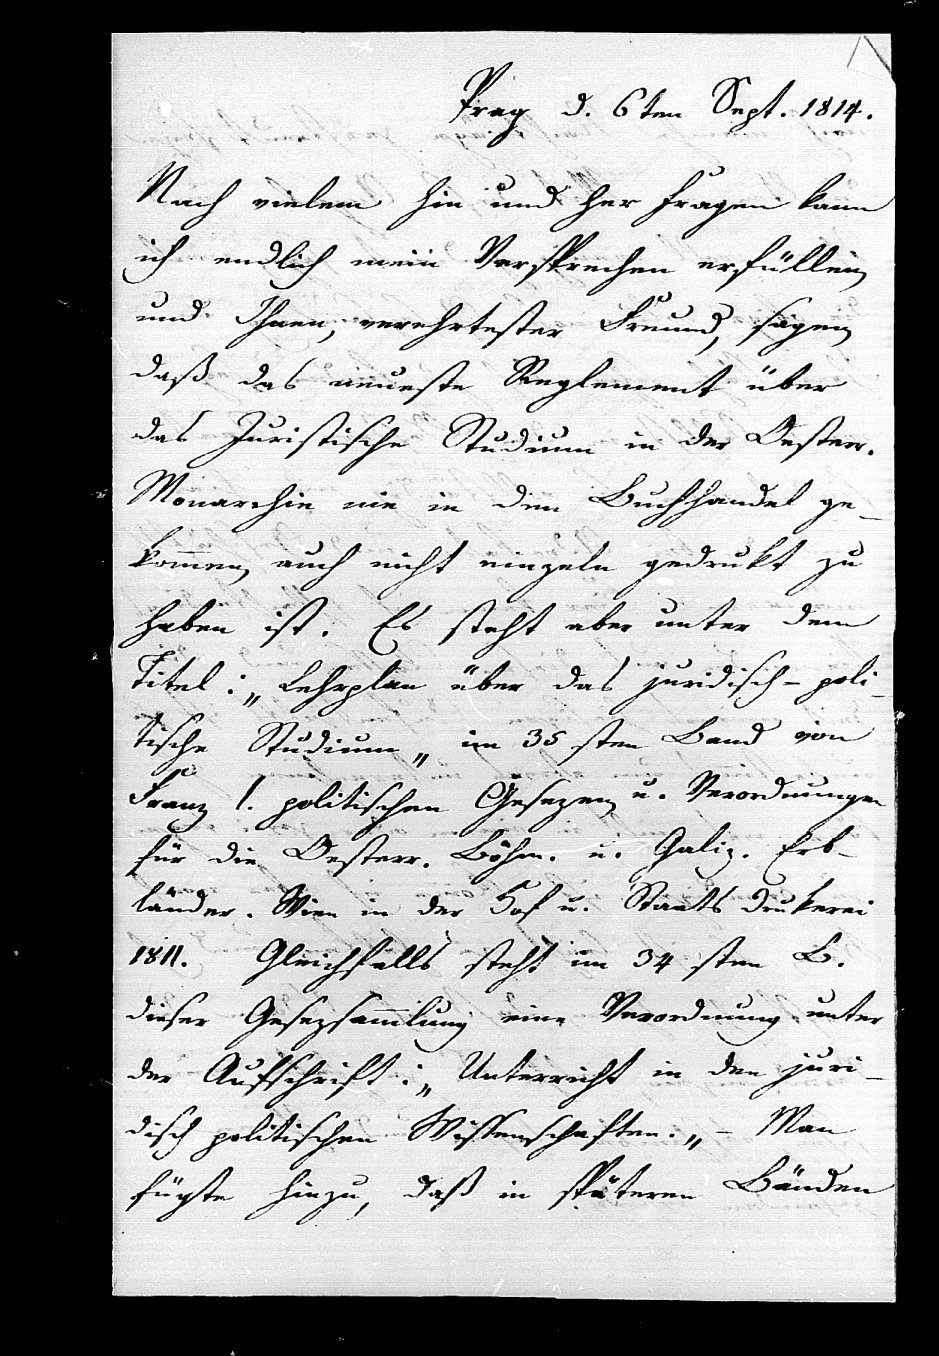 Prag d. 6ten Sept. 1814.
Nach vielem hin und her fragen kann
ich endlich mein Versprechen erfüllen,
und Ihnen, verehrtester Freund, sagen,
daß das neueste Reglement über
das Juristische Studium in der Oesterr.
Monarchie nie in den Buchhandel ge-
kom̄en, auch nicht einzeln gedrukt zu
haben ist. Es steht aber unter dem
Titel: „Lehrplan über das juridisch-poli-
tische Studium„ im 35sten Band von
Franz I. politischen Gesezen u. Verordnungen
für die Oesterr. Böhm. u. Galiz. Erb-
länder. Wien in der Hof u. Staats Drukerei
1811. Gleichfalls steht im 34sten B.
dieser Gesezsam̄lung eine Verordnung unter
der Aufschrift: „Unterricht in den juri-
disch politischen Wissenschaften.„ – Man
fügte hinzu, daß in späteren Bänden